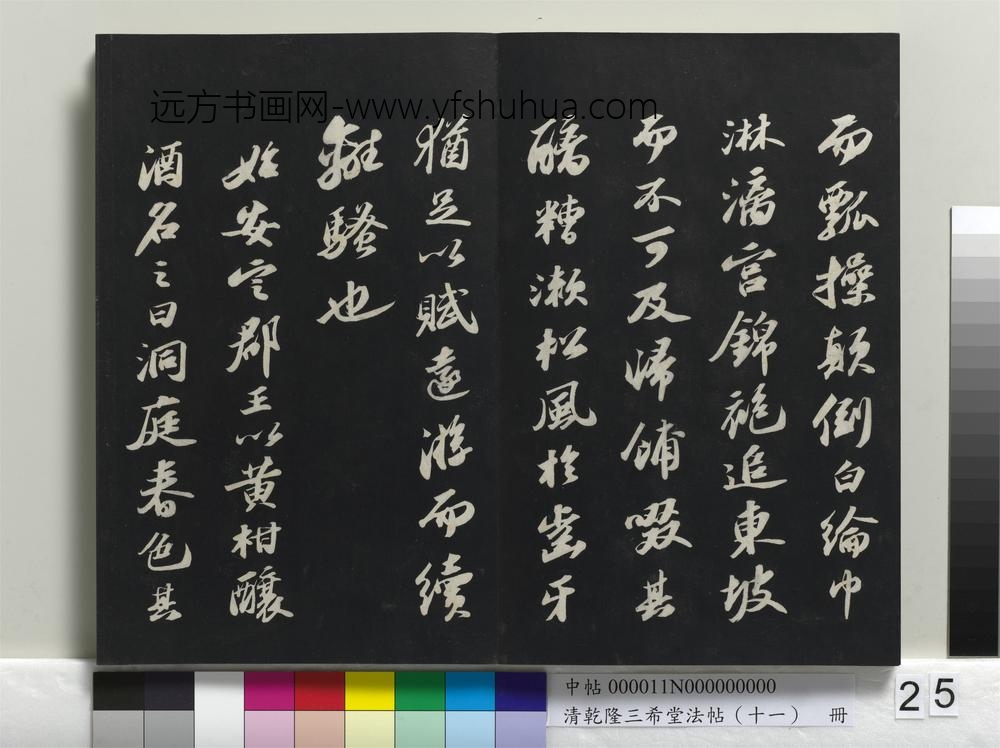 远方书画网-www.yfshuhua.com
而瓢操顛倒白綸巾
淋漓宫錦袍追東坡
而不可及歸餔歠其
醨糟漱松風於齒牙
猶足以賦遠游而續
離騷也
始安定郡王以黄柑釀
酒名之曰洞庭春色其
中帖 000011N000000000
清乾隆三希堂法帖（十一） 冊
2 5